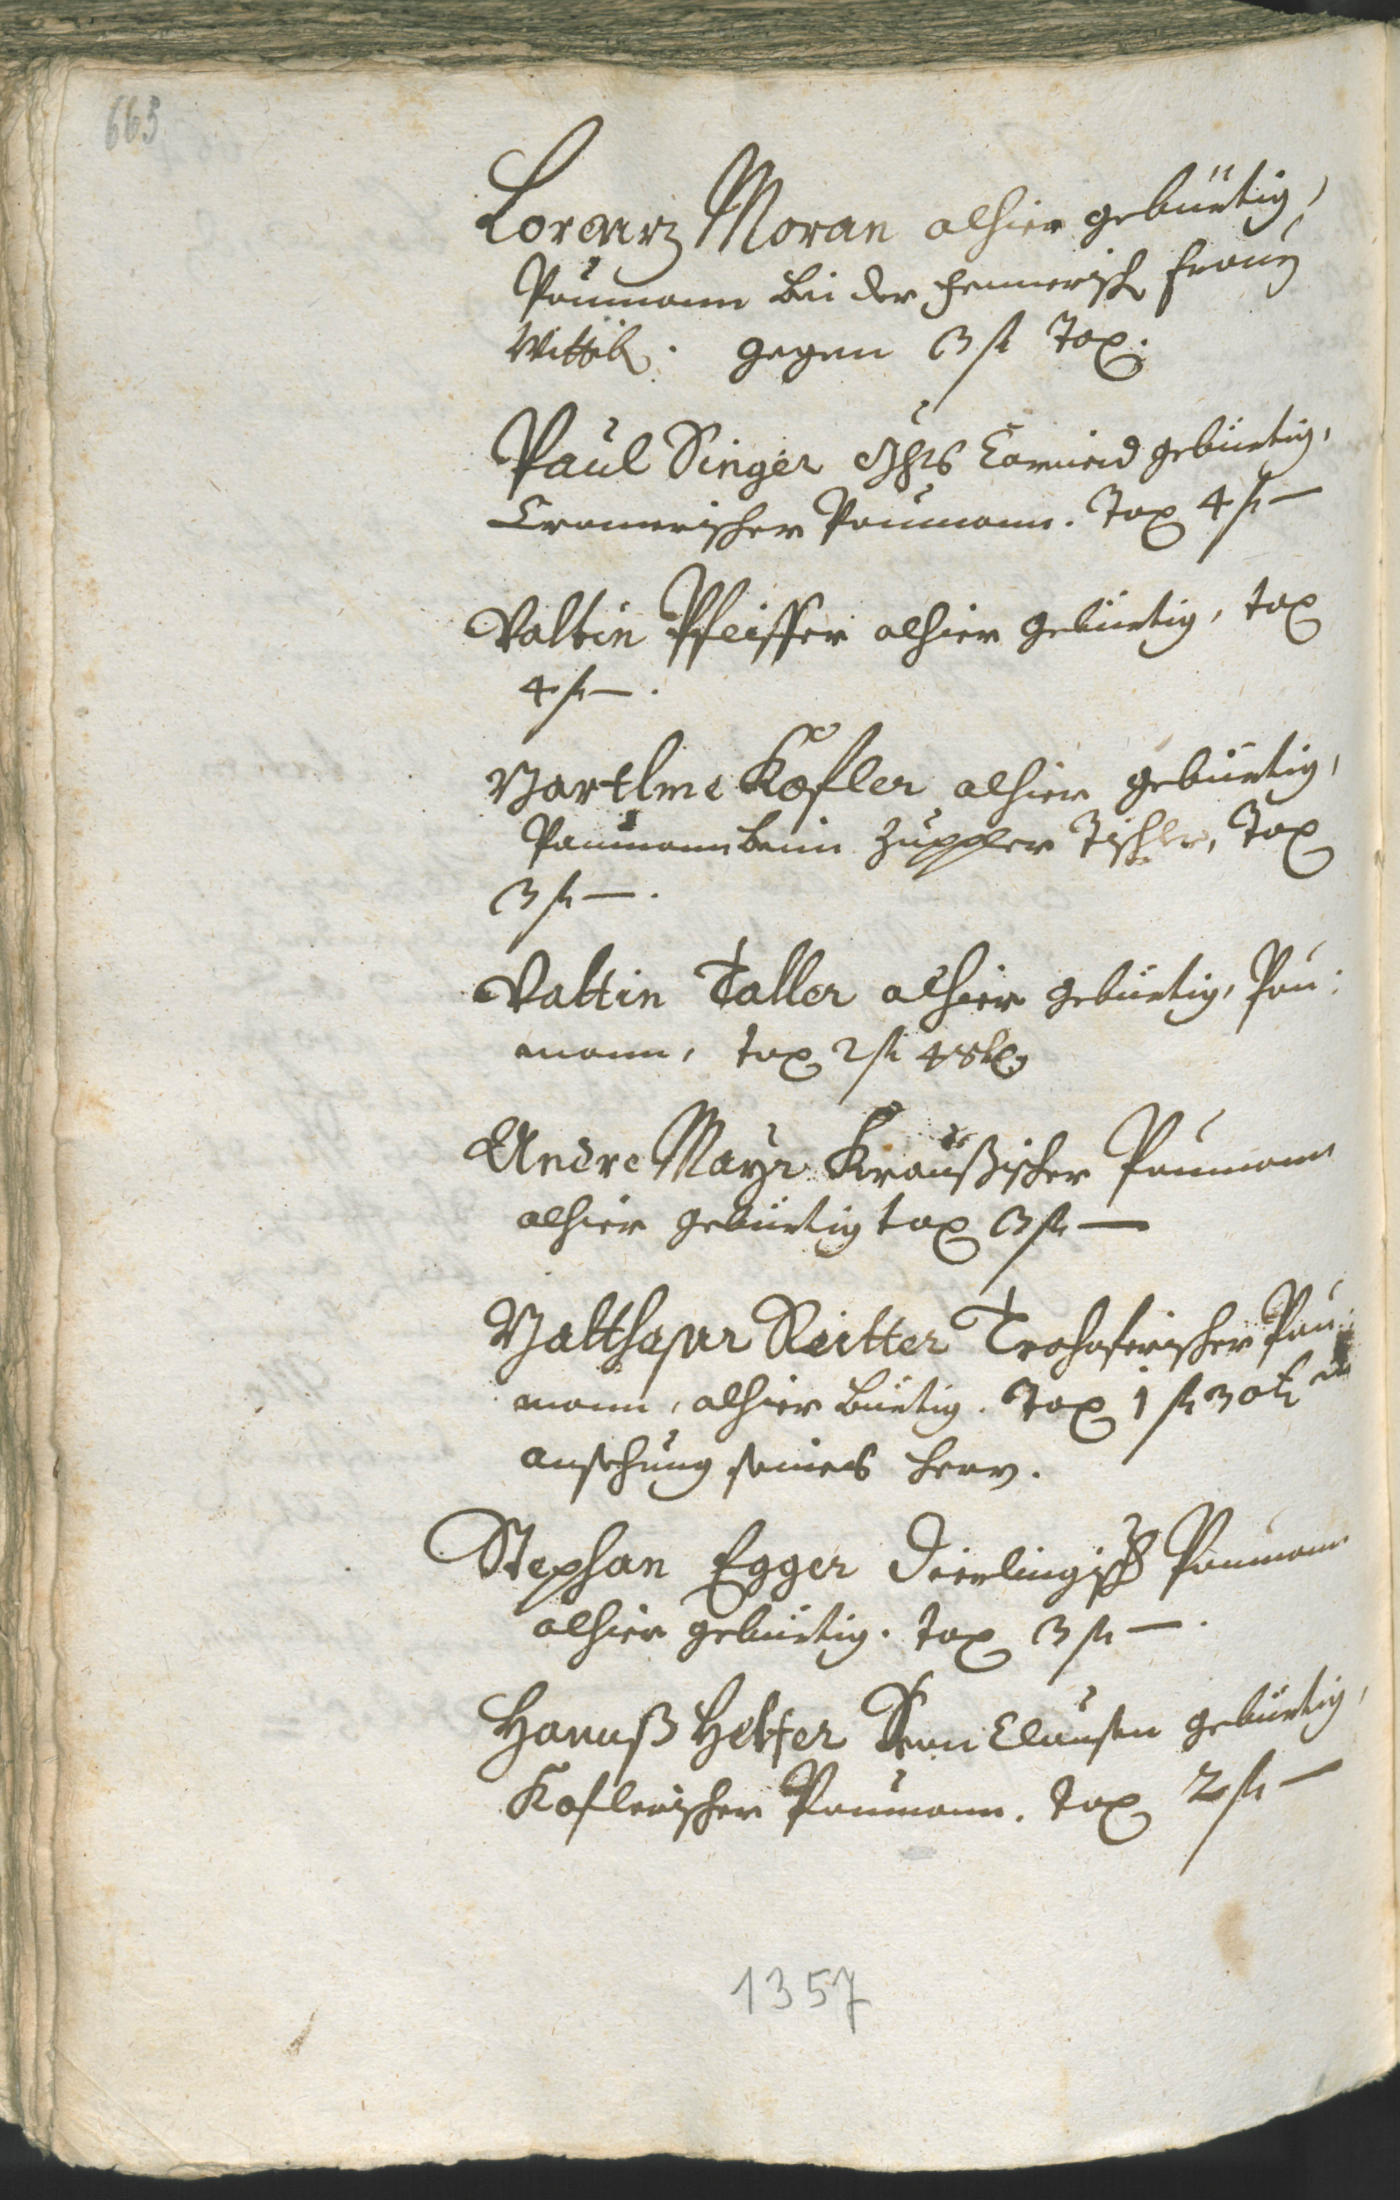 663
Lorenz Moran alhier gebürtig,
Paumann bei der Hennerisch Frau
Wittib. gegen 3 fl Tax.
Paul Singer Ghts Carneid gebürtig,
Cramerischer Paumann. Tax 4 fl —
Valtin Pfeiffer alhier gebürtig, tax
4 fl —.
Bartlme Kofler alhier gebürtig,
Paumann beim Zuggler Tischler, Tax
3 fl —.
Valtin Taller alhier gebürtig, Pau:
mann, tax 2 fl 48 kr
Andre Mayr Kraußischer Paumann
alhier gebürtig tax 3 fl —
Balthasar Reitter Trohoferischer Pau:
mann, alhier bürtig. Tax 1 fl 30 kr in
ansehung seines Herrn.
Stephan Egger Dierlingisch Paumann
alhier gebürtig. tax 3 fl —.
Hannß Helfer Von Clausen gebürtig,
Koflerischer Paumann. tax 2 fl —
1357